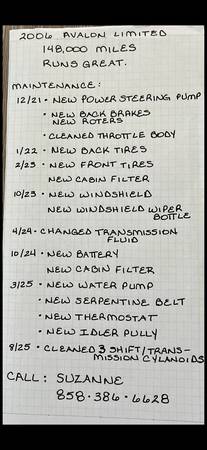 2006 AVALON LIMITED
148,000 MILES
RUNS GREAT.
MAINTENANCE:
12/21 • NEW POWER STEERING PUMP
• NEW BACK BRAKES
NEW ROTERS
• CLEANED THROTTLE BODY
1/22 • NEW BACK TIRES
2/23 • NEW FRONT TIRES
NEW CABIN FILTER
10/23 • NEW WINDSHIELD
NEW WINDSHIELD WIPER
BOTTLE
4/24 • CHANGED TRANSMISSION
FLUID
10/24 • NEW BATTERY
NEW CABIN FILTER
3/25 • NEW WATER PUMP
• NEW SERPENTINE BELT
• NEW THERMOSTAT
• NEW IDLER PULLY
8/25 • CLEANED 3 SHIFT/TRANS-
MISSION CYLANOIDS
CALL: SUZANNE
858•386•6628